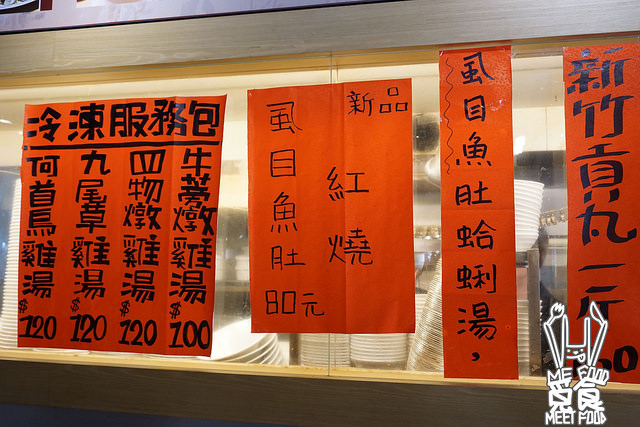 冷凍服務包
牛蒡燉雞湯$100
四物燉雞湯$120
九尾草雞湯$120
何首烏雞湯$120
新品
紅燒
虱目魚肚
80元
虱目魚肚蛤蜊湯，
新竹貢丸一斤
ME FOOD
覓食
MEET FOOD